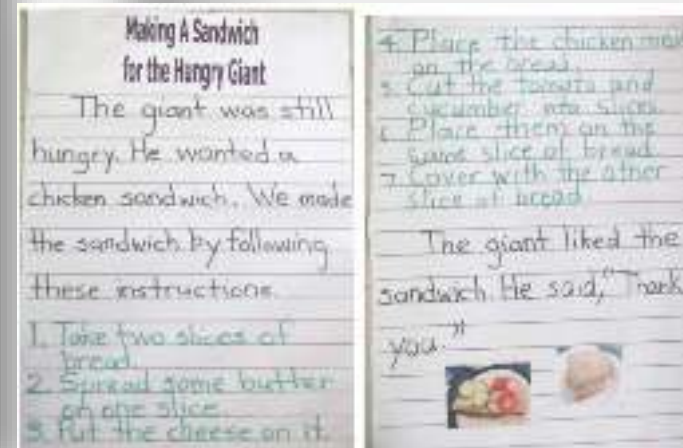 Making A Sandwich
for the Hungry Giant
The giant was still
hungry. He wanted a
chicken sandwich. We made
the sandwich by following
these instructions.
1. Take two slices of
bread.
2. Spread some butter
on one slice.
3. Put the cheese on it.
4. Place the chicken
on the bread.
5. Cut the tomato and
cucumber into slices.
6. Place them on the
same slice of bread.
7. Cover with the other
slice of bread.
The giant liked the
sandwich. He said, "Thank
you."